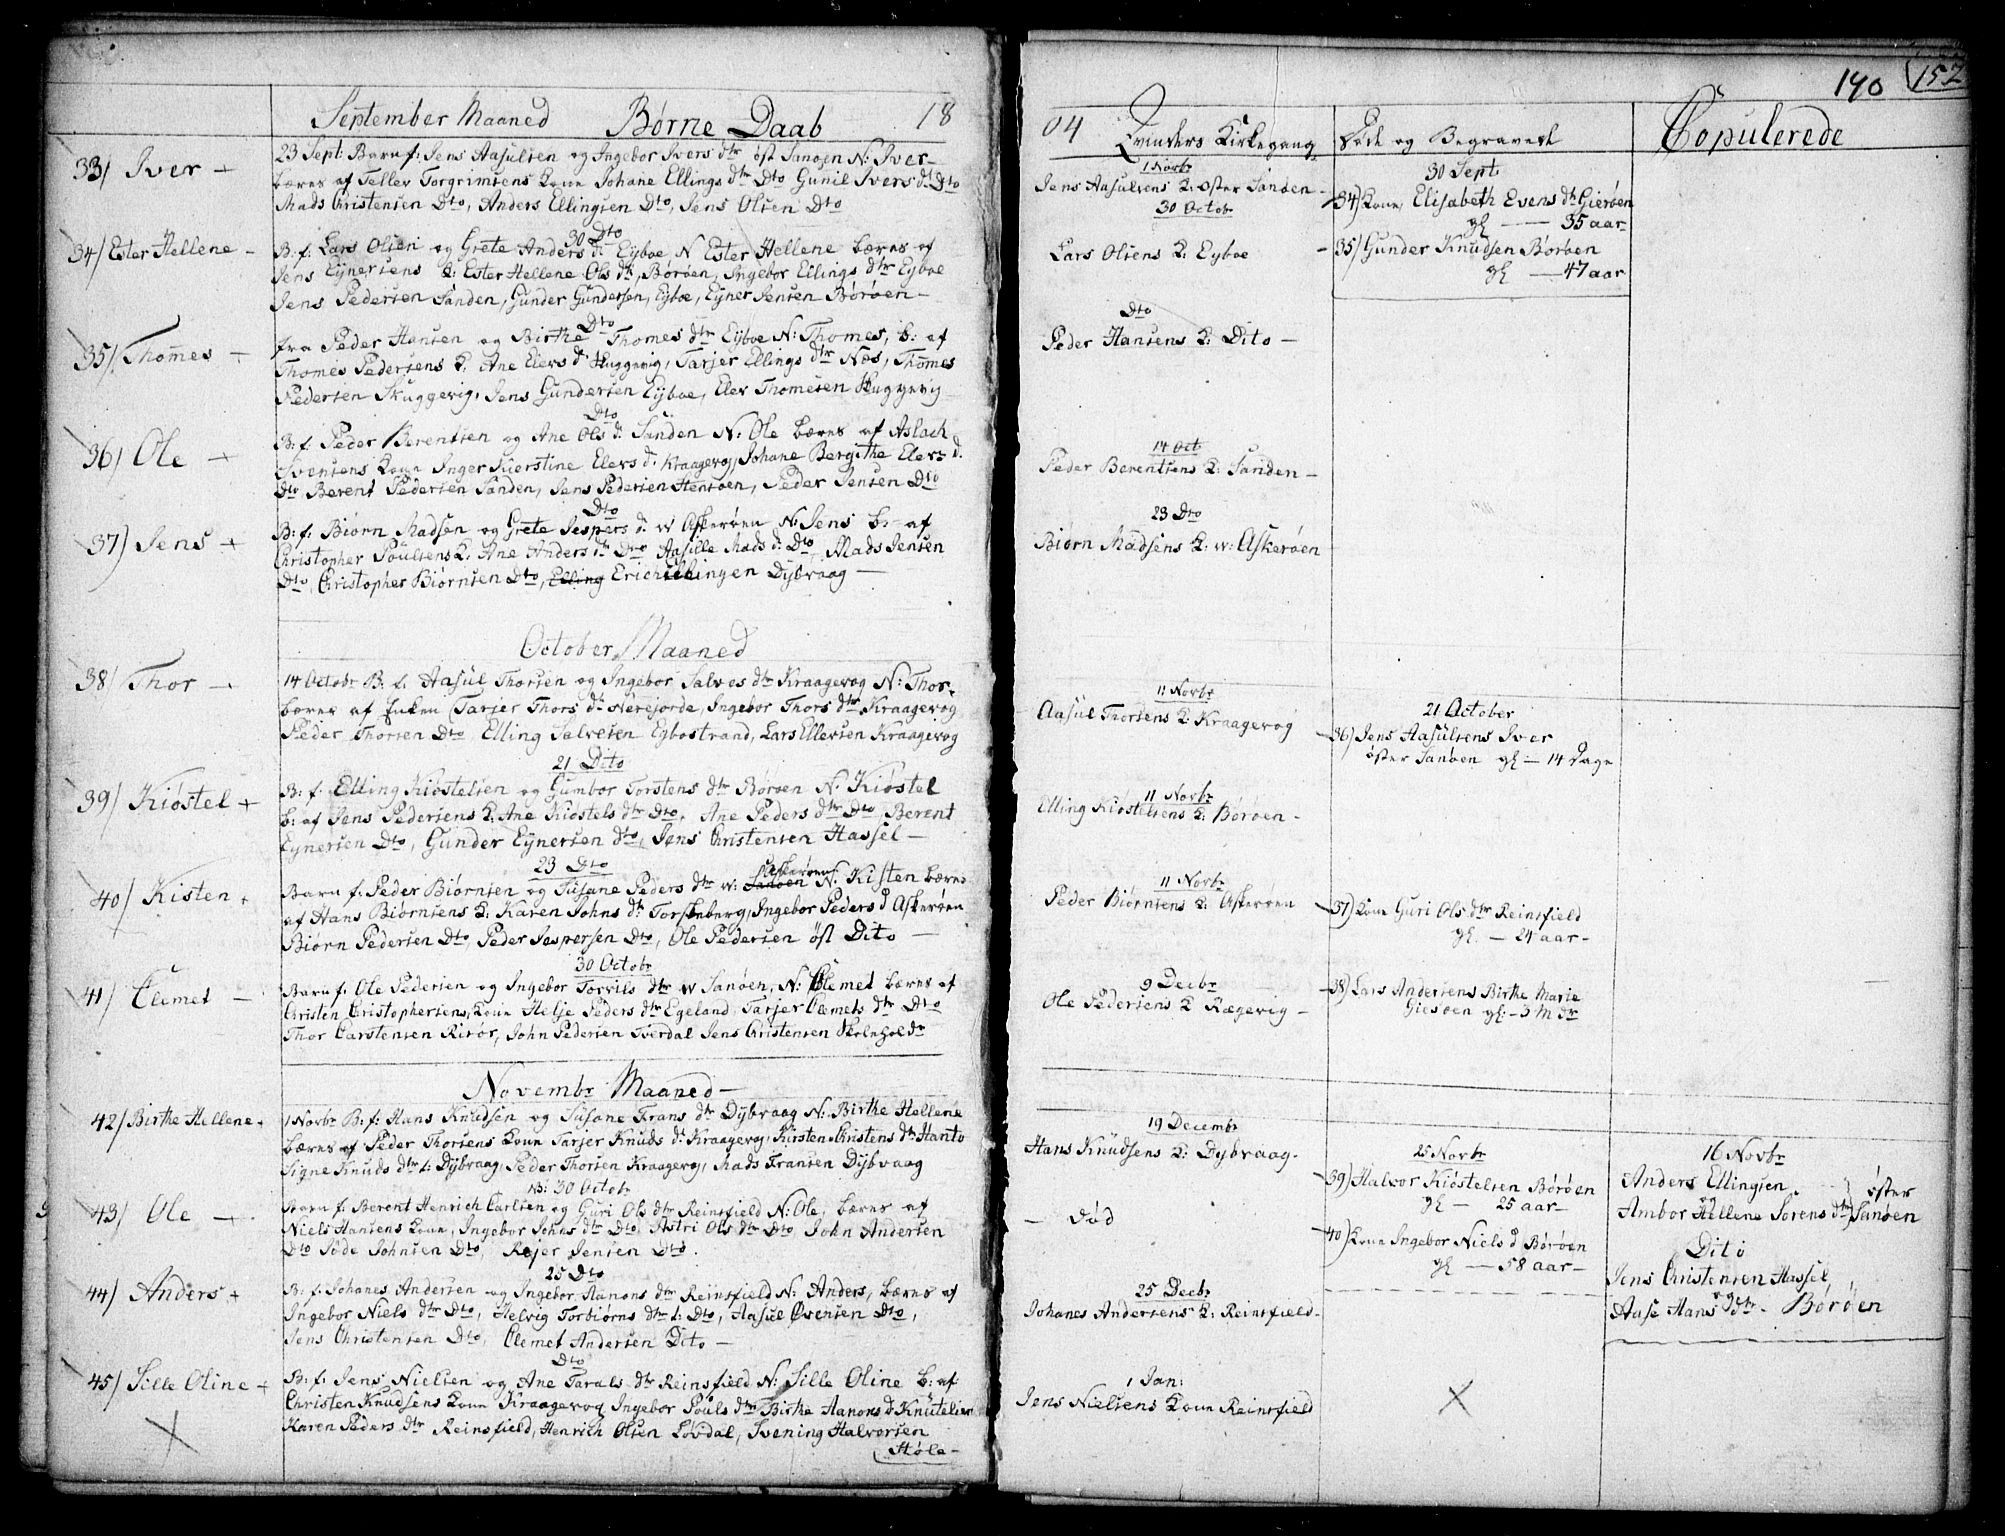 September Maaned Børne Daab 18
33) Iver +
23 Sept: Barn f: Jens Aasulsen og Ingebor Ivers dtr øst Sanøen N: Iver
bæres af Tellev Torgrimsens Kone Johane Ellings dtr Dto Gunil Ivers d: Dto
Mads Christensen Dto, Anders Ellingsen Dto, Jens Olsen Dto
30 Dto
34) Ester Hellene -
B. f: Lars Olsen og Grete Anders d: Eyboe N Ester Hellene bæres af
Jens Eynersens K: Ester Hellene Ols dtr, Børøen, Ingebor Ellings dtr Eyboe
Jens Pedersen Sanden, Gunder Gundersen, Eyboe, Eyner Jensen Børøen -
Dto
35) Thomes +
fra Peder Hansen og Birthe Thomes dtr Eyboe N: Thomes, b: af
Thomes Pedersens K. Ane Elers d: Skuggevig, Tarjer Ellings dtr Næs, Thomes
Pedersen Skuggevig, Jens Gundersen Eyboe, Elev Thomesen Skuggevig
Dto
36) Ole +
B: f. Peder Berentsen og Ane Ols d: Sanden N: Ole bæres af Aslach
Svensens Kone Inger Kierstine Elers d: Kraagevog, Johane Bergithe Elers d.
Dto Berent Pedersen Sanden, Jens Pedersen Hensøen, Peder Jensen Dto
Dto
37) Jens +
B: f. Biørn Madsen og Grete Jespers d: w Askerøen N: Jens b: af
Christopher Poulsens K. Ane Anders dtr Dto Aasille Mads d: Dto, Mads Jensen
Dto, Christopher Biørnsen Dto, Elling Erich Ellingen Dybvaag -
October Maaned
38) Thor -
14 Octobr B. f. Aasul Thorsen og Ingebor Salves dtr Kraagevog N: Thor
bæres af Enken Tarjer Thors d: Nerejorde, Ingebor Thors dtr Kraagevog
Peder Thorsen Dto Elling Salvesen Eybostrand, Lars Ellevsen Kraagevog
21 Dito
39) Kiøstel +
B: f: Elling Kiøstelsen og Gumbor Torstens dtr Børøen N: Kiøstel
b: af Jens Pedersens K: Ane Kiøstels dtr Dto, Ane Peders dtr Dto, Berent
Eynersen Dto, Gunder Eynersen Dto, Jens Christensen Hassel -
23 Dto
40) Kisten +
Barn f: Peder Biørnsen og Susane Peders dtr w: Sanøen Askerøen N: Kisten bæres
af Hans Biørnsens K: Karen Johns dtr Torskeberg, Ingebor Peders d Askerøen
Biørn Pedersen Dto, Peder Jespersen Dto, Ole Pedersen øst Dito -
30 Octobr
41) Clemet -
Barn f: Ole Pedersen og Ingebor Torvils dtr w Sanøen, N: Clemet bæres af
Christen Christophersens, Kone Helje Peders dtr Egeland, Tarjer Clemets dtr Dto
Thor Carstensen Risør, John Pedersen Tverdal Jens Christensen Skolehold
Novembr Maaned -
42) Birthe Hellene +
1 Novbr B: f: Hans Knudsen og Susane Frans dtr Dybvaag N: Birthe Hellene
bæres af Peder Thorsens Kone Tarjer Knuds d: Kraagevog, Kirsten Christens dtr Hanto
Signe Knuds dtr i: Dybvaag, Peder Thorsen Kraagevog, Mads Fransen Dybvaag
NB: 30 Octobr
43) Ole +
Barn f: Berent Henrich Carlsen og Guri Ols dtr Reinsfield N: Ole, bæres af
Niels Hansens Kone, Ingebor Johns dtr Dto, Astri Ols dtr Dto John Andersen
Dto Søde Johnsen Dto, Rejer Jensen Dto.
25 Dto
44) Anders +
B: f: Johanes Andersen og Ingebor Aanons dtr Reinsfield N: Anders, bæres af
Ingebor Niels dtr Dto, Helvig Torbiørns dtr i: Dto, Aasul Evensen Dto,
Jens Christensen Dto, Clemet Andersen Dito -
Dto
45) Sille Oline +
B: f: Jens Nielsen og Ane Tarals dtr Reinsfield N: Sille Oline b: af
Christen Knudsens Kone Kraagevog Ingebor Pouls dtr Birthe Aanons d Knutelien
Karen Peders dtr Reinsfield, Henrich Olsen Løvdal, Svening Halvorsen
Støle -
190 152
04 Qvinders Kirkegang Døde og Begravede Copulerede
1 Novbr
Jens Aasulsens K: Øster Sanøen -
30 Octobr
Lars Olsens K: Eyboe -
Dto
Peder Hansens K: Dito -
14 Oct
Peder Berentsens K: Sanden -
23 Dto
Biørn Madsens K: w: Askerøen
11 Novbr
Aasul Thorsens K: Kraagevog
11 Novbr
Elling Kiøstelsens K: Børøen -
11 Novbr
Peder Biørnsens K: Askerøen
9 Decbr
Ole Pedersens K Rægevig -
19 Decembr
Hans Knudsens K: Dybvaag -
- død
25 Decbr
Johanes Andersens K: Reinsfield -
1 Jan:
Jens Nielsens Kone Reinsfield
30 Sept:
34) Kone, Elisabeth Evens dtr Gierøen
gl - 35 aar -
35) Gunder Knudsen Børøen
gl - 47 aar
21 October
36) Jens Aasulsens Iver
øster Sanøen gl - 14 Dage
37) Kone Guri Ols dtr Reinsfield
gl. - 24 aar -
38) Lars Andersens Birthe Marie
Giesøen gl - 3 M dr
25 Novbr
39) Halvor Kiøstelsen Børøen
gl - 25 aar -
40) Kone Ingebor Niels d Børøen
gl - 58 aar -
16 Novbr
Anders Ellingsen
og øster
Ambor Hellene Sørens dtr Sanøen
Dito
Jens Christensen Hassel,
og
Aase Hans dtr - Børøen